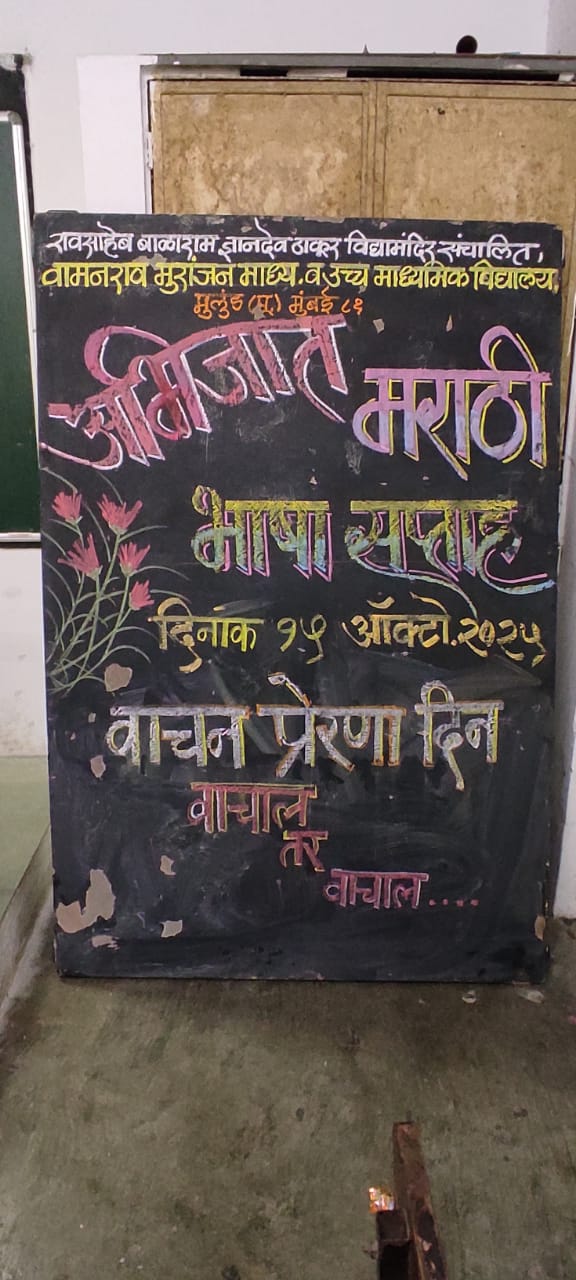 रावसाहेब बाळाराम ज्ञानदेव ठाकूर विद्यामंदिर संचालित,
वामनराव मुरांजन माध्य. व उच्च माध्यमिक विद्यालय,
मुलुंड (पू.) मुंबई ८१
अभिजात मराठी
भाषा सप्ताह
दिनांक १५ ऑक्टो. २०२५
वाचन प्रेरणा दिन
वाचाल
तर
वाचाल....